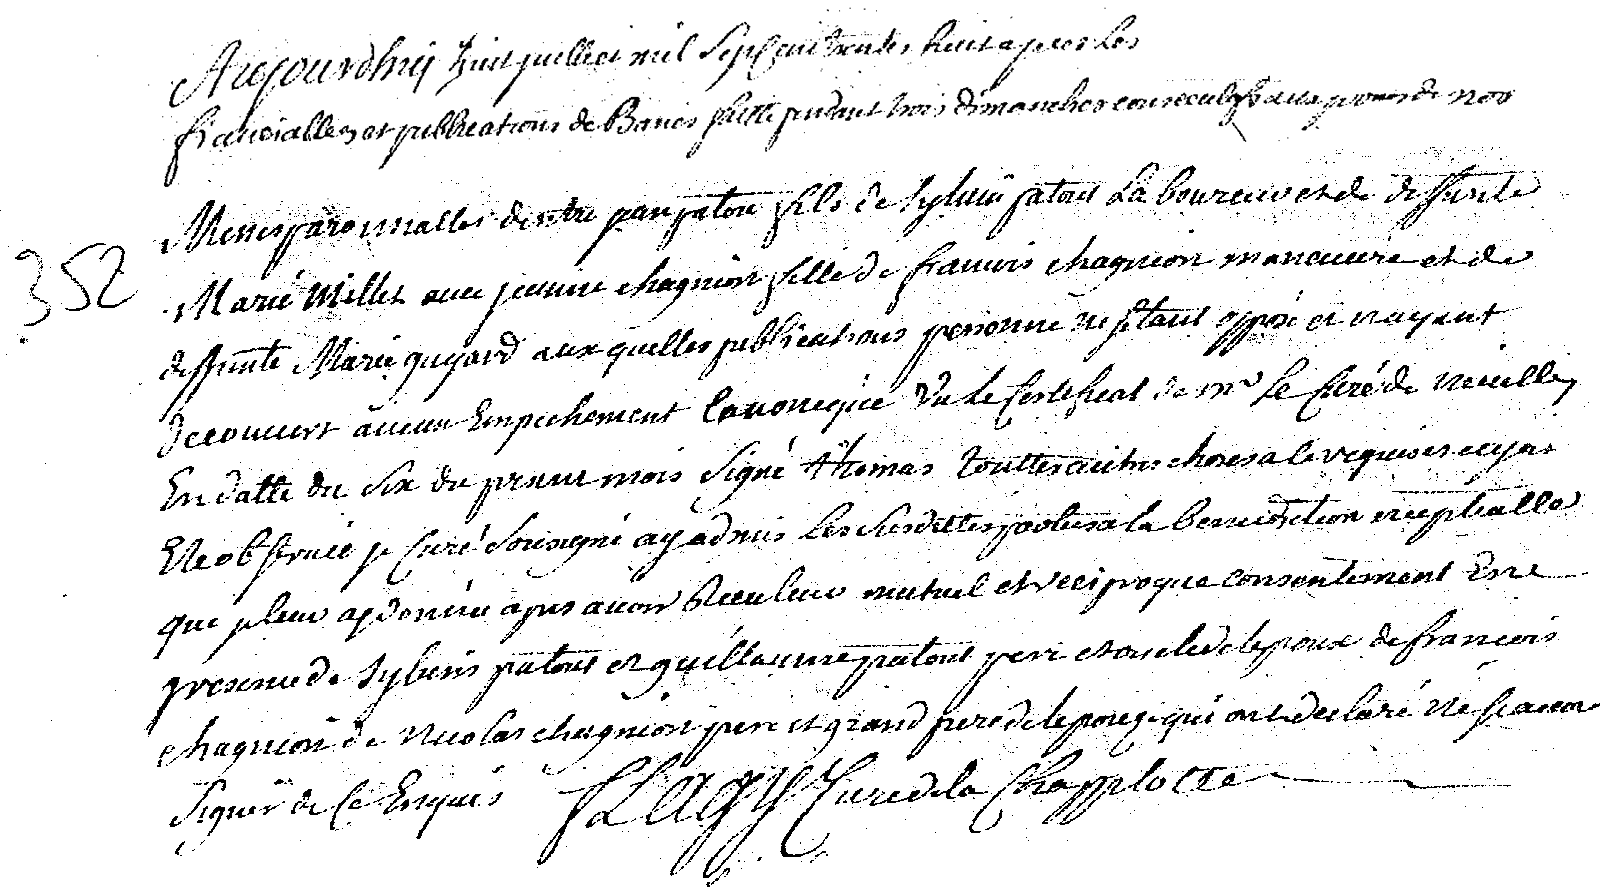 Aujourdhuy huit juillet mil sept cent trentes huit apres les
fiancialles et publications de Bancs faitte pendant trois dimanches consecutifs aux prones de nos
Messes paroissialles dentre jean patou fils de sylvain patout Laboureur et de deffunte
Marie Millet avec jeanne chagnion fille de francois chagnion manœuvre et de
352
deffunte Marie guyard aux quelles publications personne ne sestant opposé et nayant
decouvert aucun Empechement Canonique Vu le Certificat de mr le Curé de neuilly
En datte du six du present mois Signé Thomas touttes autres choses a le requises ayant
Ete observée je Curé sousigné ay admis les susdittes parties a la benediction nuptialle
que je leur ay donnée apres avoir Receu leur mutuel et reciproque consentement En
presence de sylvain patout et guillaume patout pere et oncle de lepoux de francois
chagnion de nicolas chagnion pere et grand pere de lepouze qui ont declaré ne scavoir
Signer de Ce Enquis FLAGY Curé de la Chapplotte